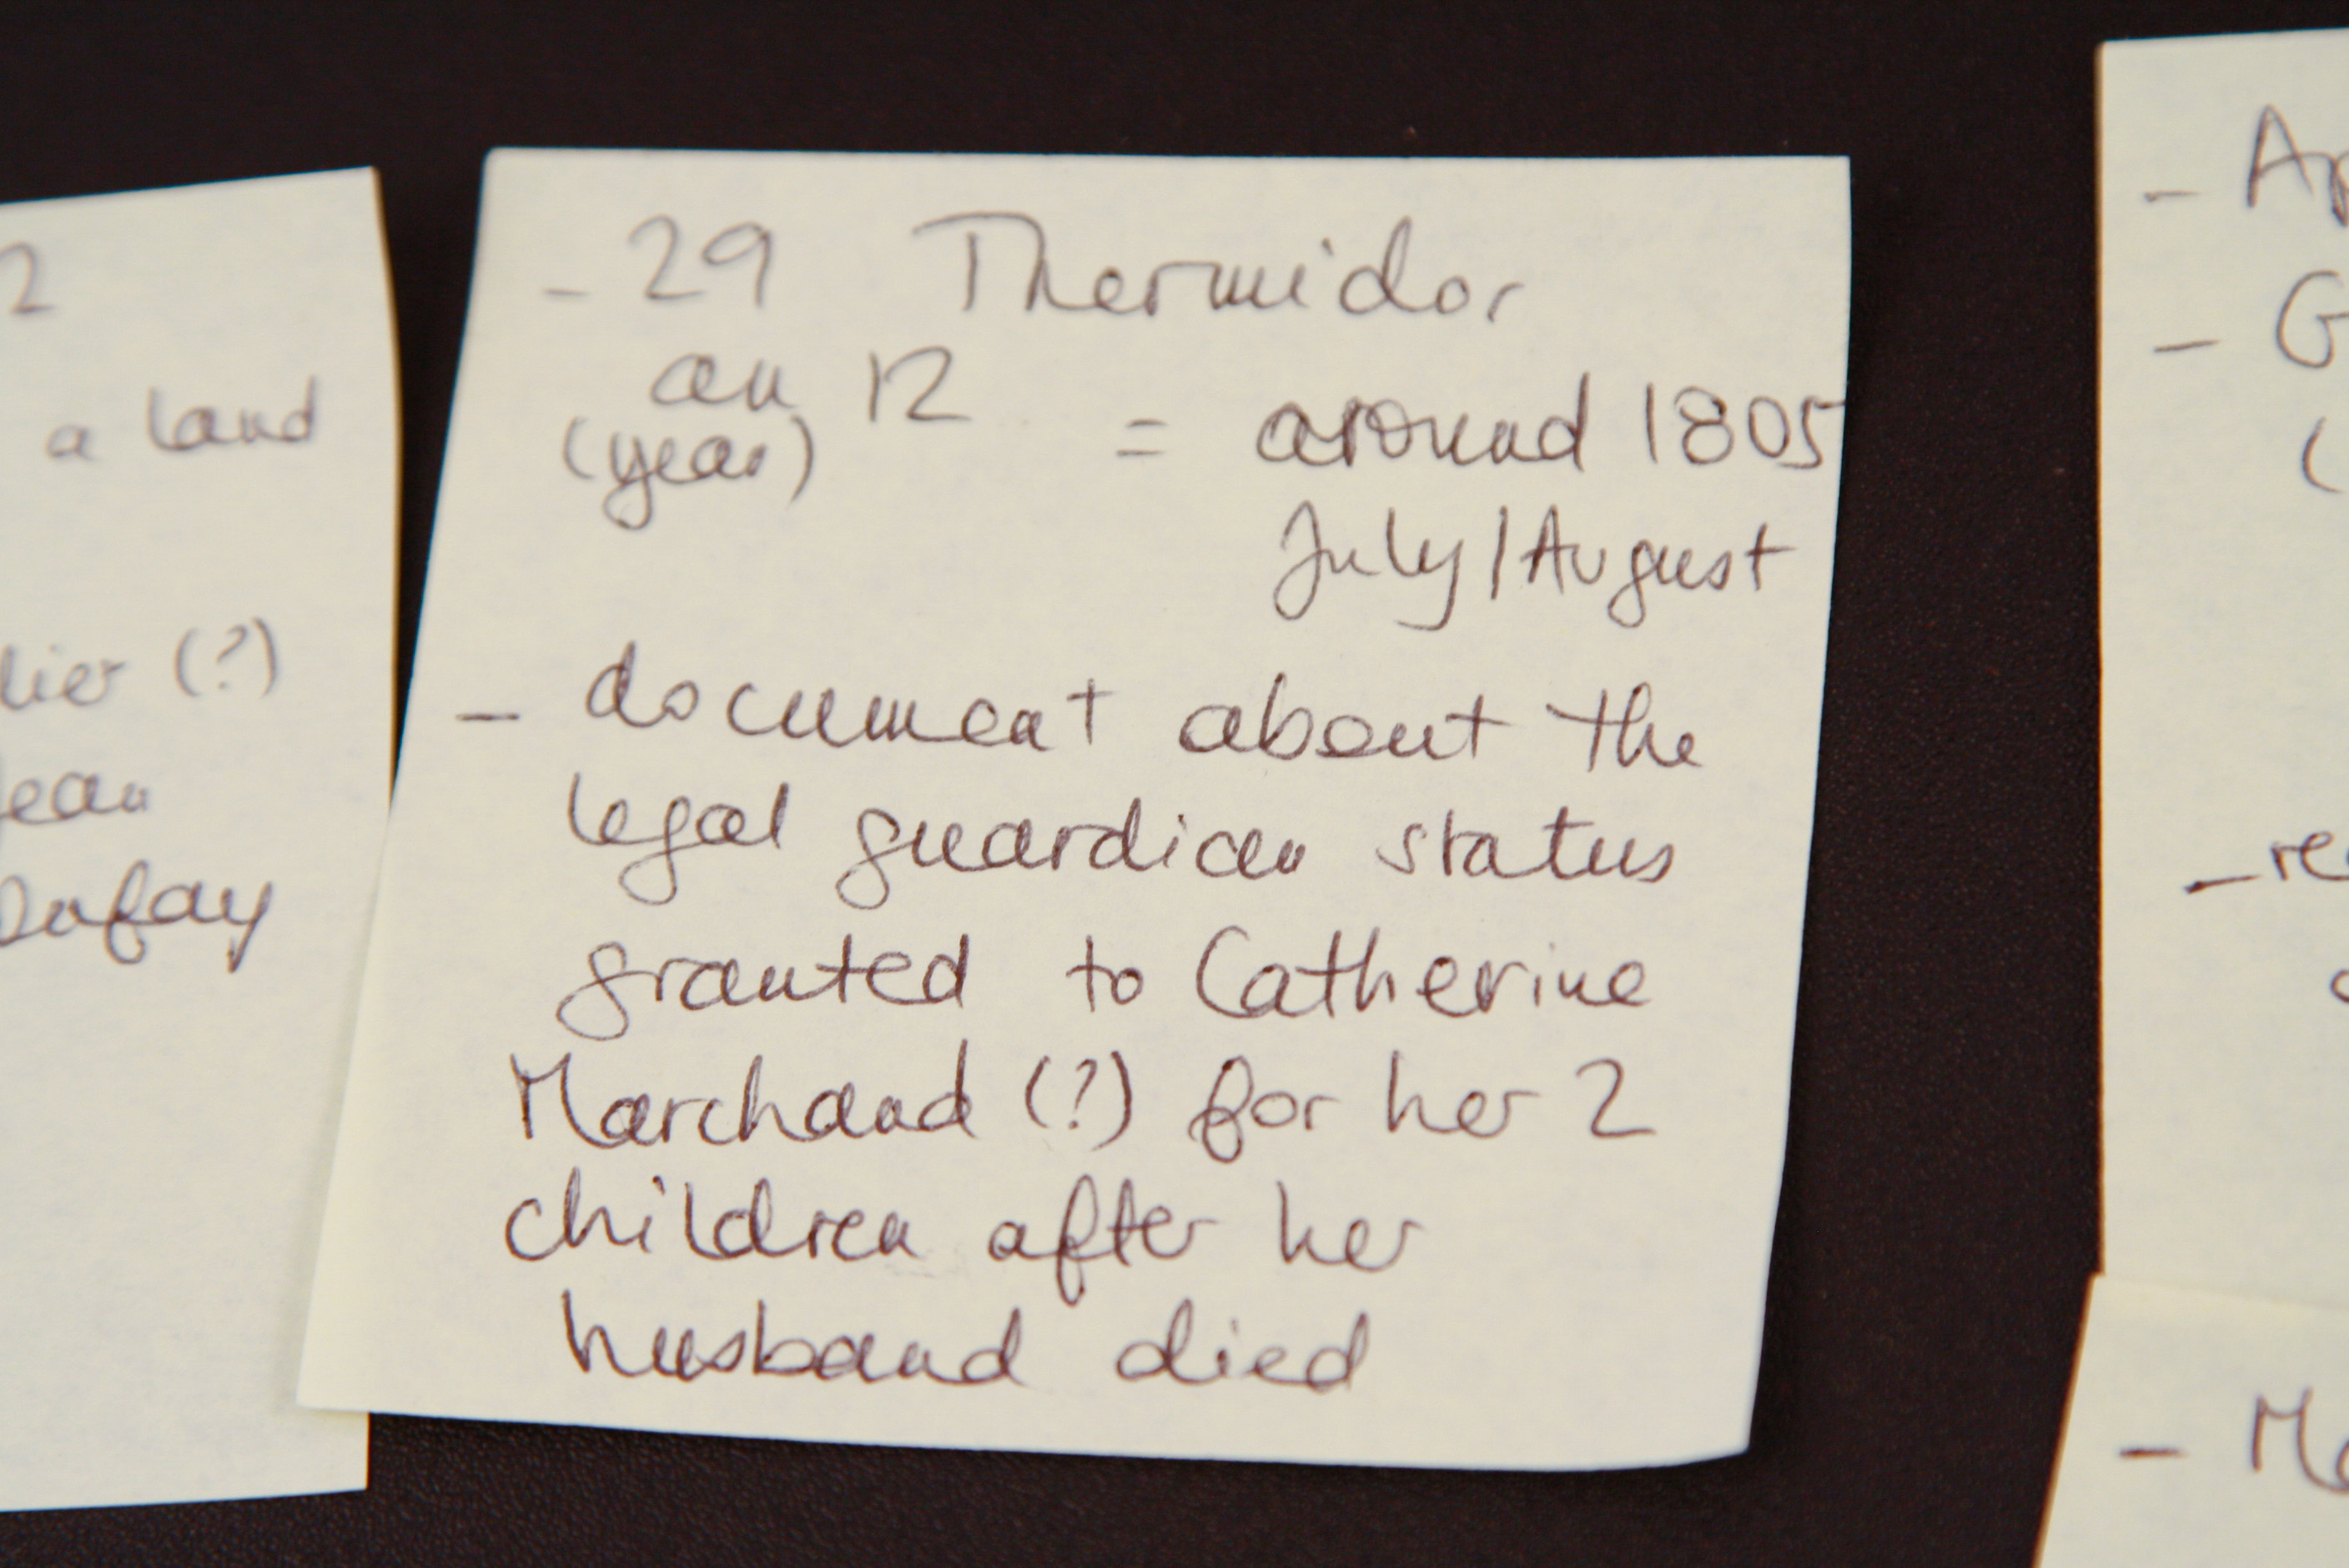 2
a land
(?)
Dufay
- 29 Thermidor
an 12
(year) = around 1805
July/August
- document about the
legal guardian status
granted to Catherine
Marchand (?) for her 2
children after her
husband died
-
- G
(
-
-